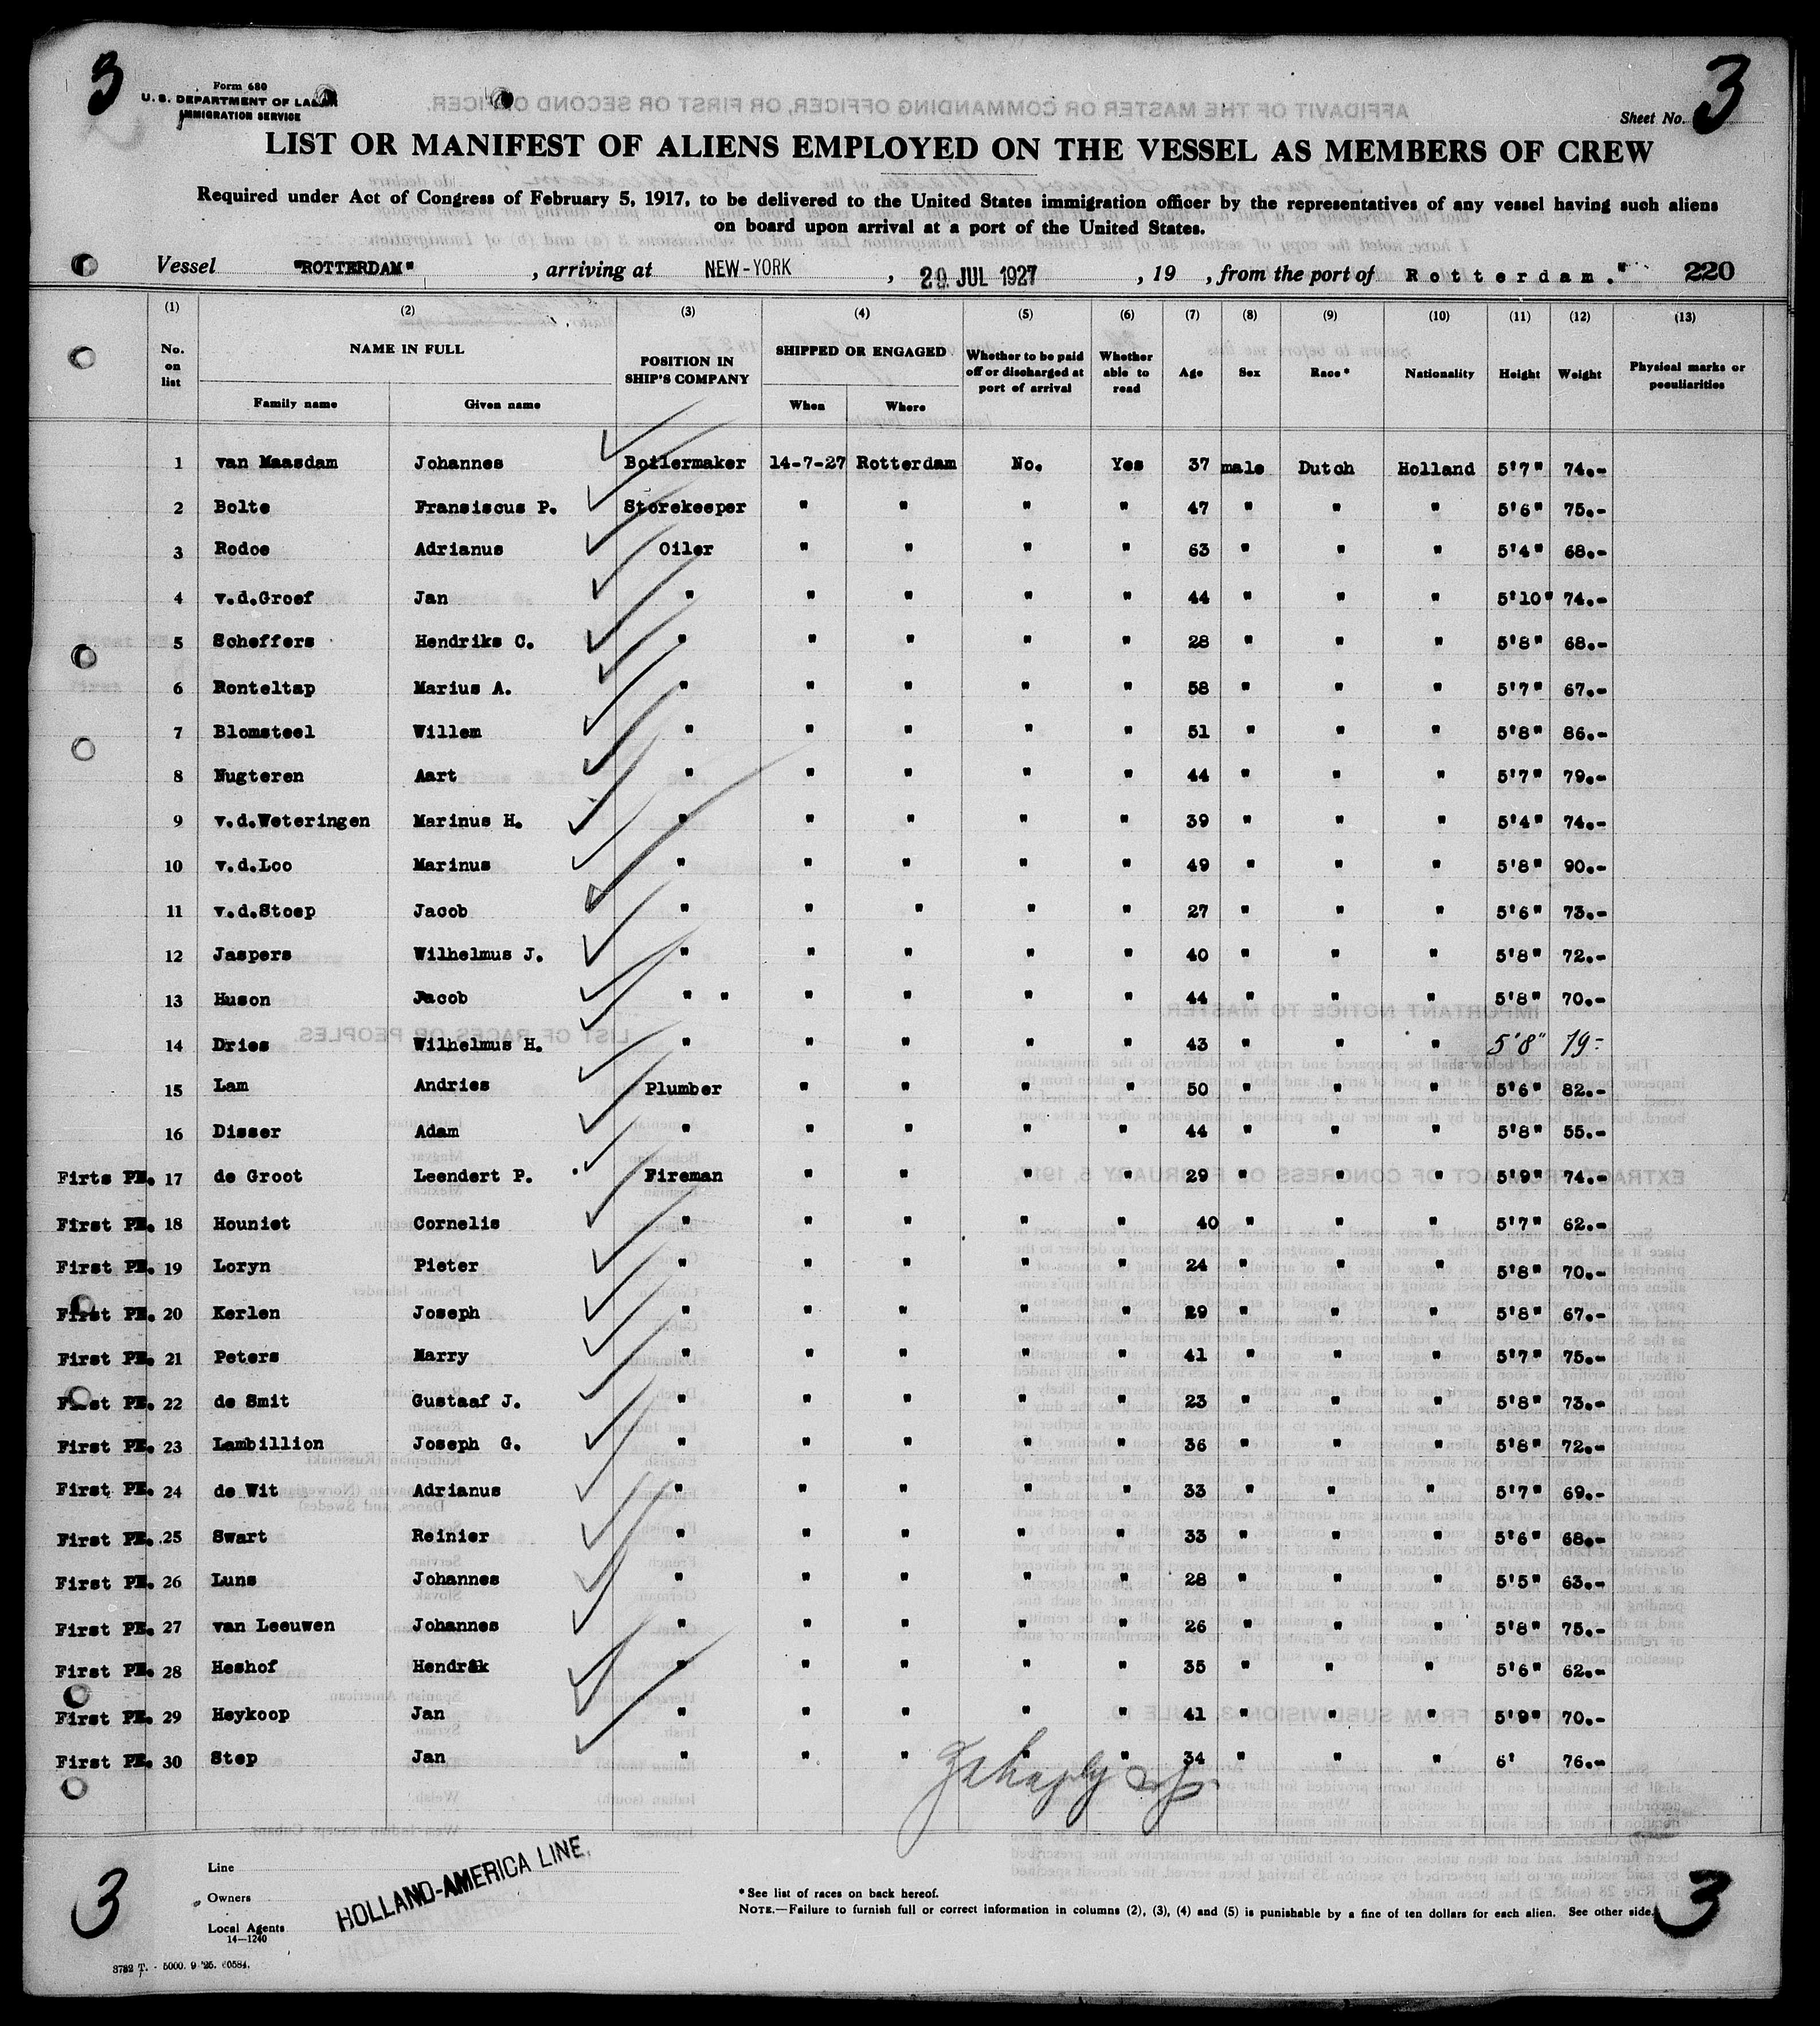 3
Form 680
U. S. DEPARTMENT OF LABOR
IMMIGRATION SERVICE
Sheet No. 3
LIST OR MANIFEST OF ALIENS EMPLOYED ON THE VESSEL AS MEMBERS OF CREW
Required under Act of Congress of February 5, 1917, to be delivered to the United States immigration officer by the representatives of any vessel having such aliens
on board upon arrival at a port of the United States.
Vessel "ROTTERDAM" , arriving at NEW-YORK , 29 JUL 1927 , 19 , from the port of Rotterdam." 220
(1) (2) (3) (4) (5) (6) (7) (8) (9) (10) (11) (12) (13)
No. on list NAME IN FULL Family name Given name POSITION IN SHIP'S COMPANY SHIPPED OR ENGAGED When Where Whether to be paid off or discharged at port of arrival Whether able to read Age Sex Race* Nationality Height Weight Physical marks or peculiarities
1 van Maasdam Johannes Boilermaker 14-7-27 Rotterdam No. Yes 37 male Dutch Holland 5'7" 74.-
2 Bolte Fransiscus P. Storekeeper " " " " 47 " " " 5'6" 75.-
3 Rodoe Adrianus Oiler " " " " 63 " " " 5'4" 68.-
4 v.d.Groef Jan " " " " " 44 " " " 5'10" 74.-
5 Scheffers Hendriks C. " " " " " 28 " " " 5'8" 68.-
6 Ronteltap Marius A. " " " " " 58 " " " 5'7" 67.-
7 Blomsteel Willem " " " " " 51 " " " 5'8" 86.-
8 Nugteren Aart " " " " 44 " " " 5'7" 79.-
9 v.d.Weteringen Marinus H. " " " " " 39 " " " 5'4" 74.-
10 v.d.Loo Marinus " " " " " 49 " " " 5'8" 90.-
11 v.d.Stoep Jacob " " " " " 27 " " " 5'6" 73.-
12 Jaspers Wilhelmus J. " " " " " 40 " " " 5'8" 72.-
13 Huson Jacob " " " " " " 44 " " " 5'8" 70.-
14 Dries Wilhelmus H. " " " " " 43 " " " 5'8" 79-
15 Lam Andries Plumber " " " " 50 " " " 5'6" 82.-
16 Disser Adam " " " " " 44 " " " 5'8" 55.-
Firts PE. 17 de Groot Leendert P. Fireman " " " " 29 " " " 5'9" 74.-
First PE. 18 Houniet Cornelis " " " " " 40 " " " 5'7" 62.-
First PE. 19 Loryn Pieter " " " " " 24 " " " 5'8" 70.-
First PE. 20 Kerlen Joseph " " " " " 29 " " " 5'8" 67.-
First PE. 21 Peters Marry " " " " " 41 " " " 5'7" 75.-
First PE. 22 de Smit Gustaaf J. " " " " " 23 " " " 5'8" 73.-
First PE. 23 Lambillion Joseph G. " " " " " 36 " " " 5'8" 72.-
First PE. 24 de Wit Adrianus " " " " " 33 " " " 5'7" 69.-
First PE. 25 Swart Reinier " " " " " 33 " " " 5'6" 68.-
First PE. 26 Luns Johannes " " " " " 28 " " " 5'5" 63.-
First PE. 27 van Leeuwen Johannes " " " " " 26 " " " 5'8" 75.-
First PE. 28 Heshof Hendrik " " " " " 35 " " " 5'6" 62.-
First PE. 29 Heykoop Jan " " " " " 41 " " " 5'9" 70.-
First PE. 30 Step Jan " " " " " 34 " " " 6' 76.-
Line
Owners
Local Agents
HOLLAND-AMERICA LINE.
14—1240
3782 T. - 5000. 9 '25. 60584.
* See list of races on back hereof.
NOTE.—Failure to furnish full or correct information in columns (2), (3), (4) and (5) is punishable by a fine of ten dollars for each alien. See other side.
3
3